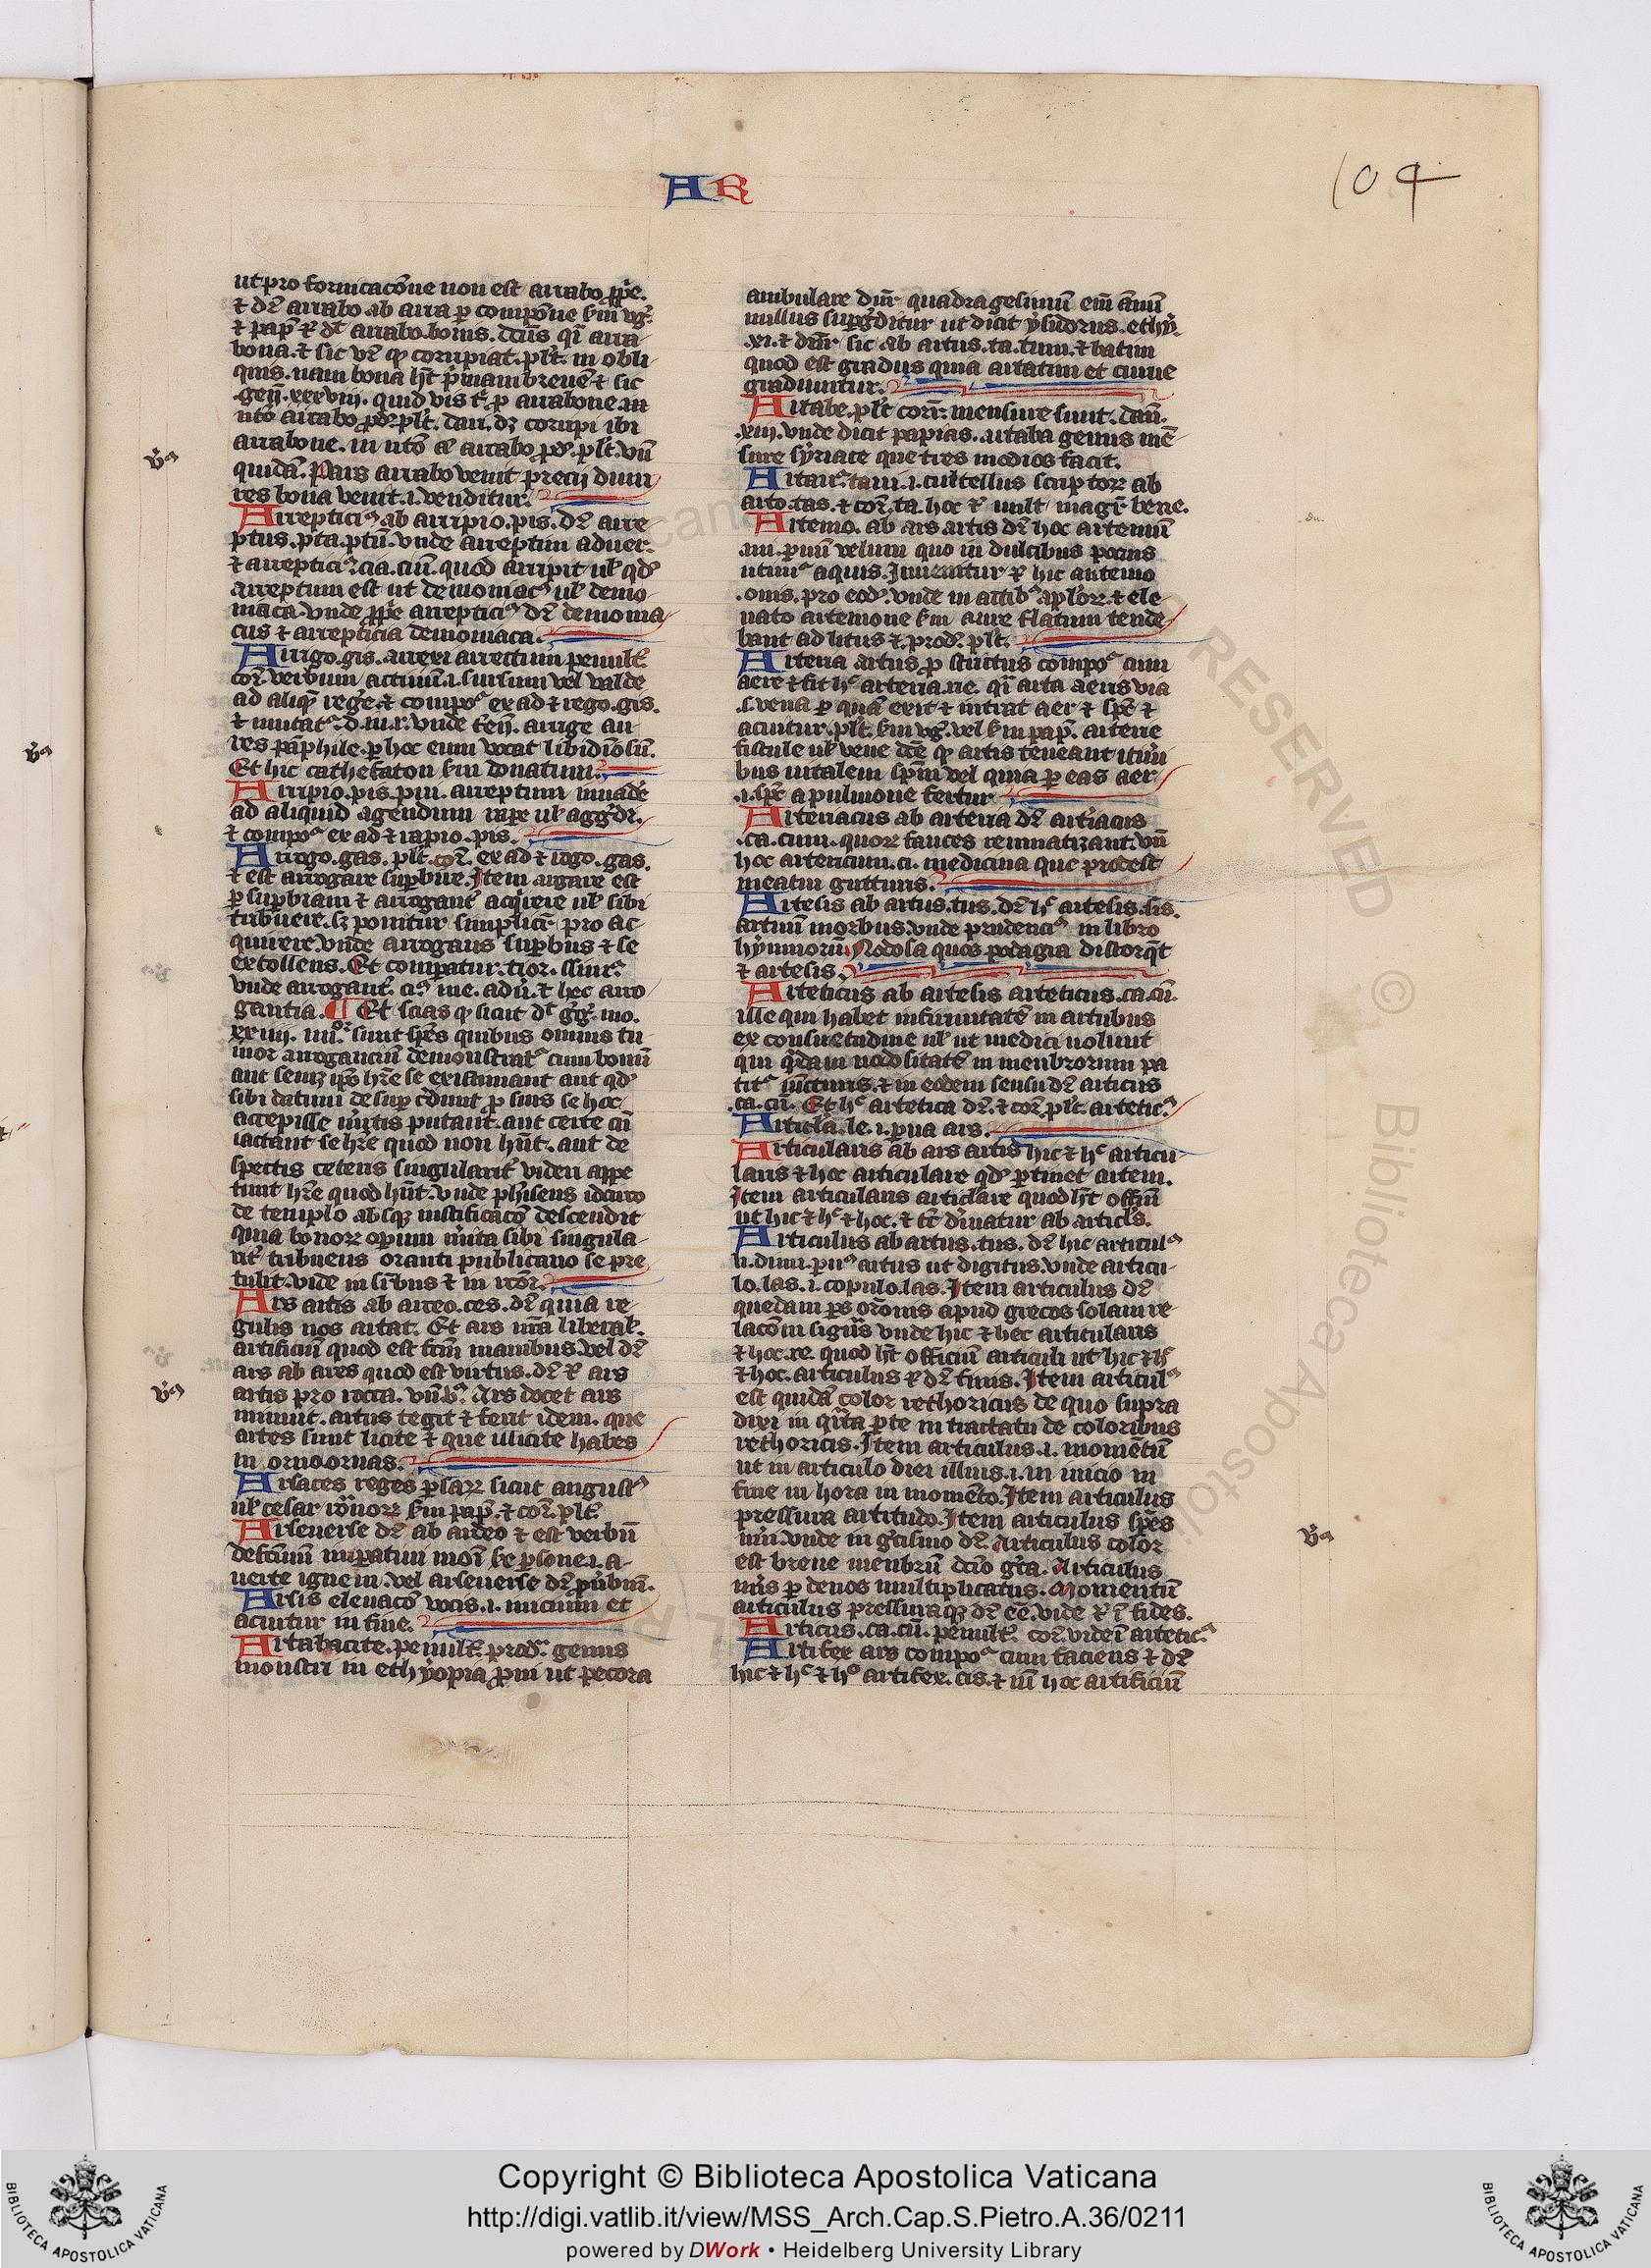 AR
104
ut pro fornicacōne non est arrabo ꝓpͥe.
⁊ dr̄ arrabo ab arra ꝑ compōne ẜm vg̾.
⁊ pap̄ ⁊ dt̄ arrabo.bonis.
bona.⁊ sic vr̄ ꝙ corripiat.plr̄. in obli
quis.nam bona ht̄ p̄mam breuē ⁊ sic
.gen̄.xxxviii. quid vis t̄ ꝑ arrabone.in
arrabone. in
quidā. Pars arrabo venit precij dum
res bona venit.i.venditur.
Arrepticiꝰ ab arripio.pis.dr̄ arre
ptus.pta.ptū.vnde arreptim aduer.
⁊ arrepticiꝰ.cia.ciū. quod arripit ul̄ qd̾
arreptum est ut demoniacꝰ ul̄ demo
niaca.vnde ꝓpͥe arrepticiꝰ dr̄ demonia
cus ⁊ arrepticia demoniaca.
Arrigo.gis.arrexi arrectum penult̄.
cor̄.verbum actiuū.i.sursum vel valde
ad aliqͣ reg̾e.⁊ compoꝰ ex ad ⁊ rego.gis.
⁊ mutatᷣ.d.in.r.vnde teren̄. arrige au
res pāphile.ꝑ hoc eum vocat libidinosū.
Et hic cathefaton ẜm donatum.
Arripio.pis.pui. arreptum inuade᷑
ad aliquid agendum rape᷑ ul̄ agg̾di.
⁊ compoꝰ ex ad ⁊ rapio.pis.
Arrogo.gas.plt̄.cor̄. ex ad ⁊ rogo.gas.
⁊ est arrogare suꝑbire. Item arrogare est
ꝑ suꝑbiam ⁊ arrogant᷑ acqͥrere ul̄ sibi
tribuere.sꝫ ponitur simplicit᷑ pro ac
quirere.vnde arrogans suꝑbus ⁊ se
extollens. Et compatur.tior.ssimꝰ
vnde arrogant᷑.ciꝰ.me.adu̾.⁊ hec arro
gantia. ¶ Et scias ꝙ sicut dt̄ gͥg̾.mo.
xxiiii. iiiiᵒʳ sunt sp̄es quibus omnis tu
mor arroganciū demonstratᷣ cum bonū
aut semꝫ ip̄o hr̄e se existimant aut qd̾
sibi datum desuꝑ cͥdunt ꝓ suis se hoc
accepisse mͥtis putant.aut certe cū
iactant se hr̄e quod non hn̄t. aut de
spectis ceteris singularit᷑ videri appe
tunt hr̄e quod hn̄t.vnde phͣriseus idcirco
de templo absqꝫ iustificacōe descendit
quia bonoꝝ operum mͥita sibi singula
rit᷑ tribuens oranti publicano se pre
tulit.vide in
Ars artis ab arceo.ces.dr̄ quia re
gulis nos artat. Et ars nr̄a liberal.
artificiū quod est fcm̄ manibus.vel dr̄
ars ab ares quod est virtus.dr̄ ⁊ ars
artis pro rocca. Ars docet ars
minuit.artus tegit ⁊ ferit idem. que
artes sunt licite ⁊ que illicite habes
in orno ornas.
Arsaces reges ꝑsaꝝ sicut augustꝰ
ul̄ cesar romnoꝝ ẜm pap̄ ⁊ cor̄.plt̄.
Arseuerse dr̄ ab ardeo ⁊ est verbū
defctiuū
uerte ignem.vel arseuerse dr̄ ꝓu̾biū.
Arsis eleuacō vocis.i.inicium et
acuitur in fine.
Artabacite.penult̄.prodꝰ. genus
monstri in ethyopia ꝓni ut pecora
ambulare dnr̄ quadragesimū eni annū
nullus suꝑg̾ditur ut dicit ysidorus.ethy.
.xi.⁊ dnr̄ sic ab artus.ta.tum.⁊ batin
quod est gradus quia artatim et curue
gradiuntur.
Artabe.plt̄ corr̄. mensure sunt.dan̄.
.xiii.vnde dicit papias.artaba genus mē
sure syriace que tres modios facit.
Artauꝰ.taui.i.cultellus scriptoꝝ ab
arto.tas.⁊ cor̄.ta.hoc ⁊ uult magr̄ bene.
Artemo. ab ars artis dr̄ hoc artemiū
.nii.puū velum quo in dulcibus parnis
utimᷣ aquis.Inuenitur ⁊ hic artemo
.onis.pro eod̾.vnde in actibꝰ.aplōꝝ.⁊ ele
uato artemone ẜm aure flatum tende
bant ad litus ⁊.prod̾.plt̄.
Arteria artus ꝓ strictus compoꝰ cum
aere ⁊ fit hͨ arteria.rie. qͣi arta aeris via
.s.vena ꝑ quā exit ⁊ intrat aer ⁊ sp̄c ⁊
acuitur.plt̄.ẜm vg̾.vel ẜm pap̄. arterie
fistule ul̄ vene dc̄e ꝙ artis teneant
bus uitalem spm̄ vel quia ꝑ eas aer
.i.sp̄c a pulmone fertur
Arteriacus ab arteria dr̄ artriacus
.ca.cum.quoꝝ fauces reumatizant.vn̄
hoc artericum.ci.medicina que prodest
meatui gutturis.
Artesis ab artus.tus.dr̄ hͨ artesis.sis.
artuū morbus.vnde prudenciꝰ in libro
hymnorū. Nodosa quos podagra distorqͣt
⁊ artesis.
Arteticus ab artesis arteticus.ca.cū.
ille qui habet infirmitatē in artubus
ex consuetudine ul̄ ut medici uolunt
qui qͣdam nodositatē in menbrorum pa
titᷣ iūcturis.⁊ in eodem sensu dr̄ articus
.ca.cū. Et hͨ artetica dr̄.⁊ cor̄.plt̄.arteticꝰ
Articla.le.i.pua ars.
Articularis ab ars artis hic ⁊ hͨ articu
laris ⁊ hoc articulare qd̾ ꝑtinet artem.
Item articularis articlare quod ht̄ offm̄
ut hic ⁊ hͨ ⁊ hoc.⁊ tc̄ dͥiuatur ab articl̾s.
Articulus ab artus.tus.dr̄ hic articulꝰ
li.dimi.puꝰ artus ut digitus.vnde articu
lo.las.i.copulo.las. Item articulus dr̄
quedam ꝑs orōnis apud grecos solam re
lacōm vnde hic ⁊ hec articularis
⁊ hoc.re. quod ht̄ officiū articuli ut hic ⁊ hͨ
⁊ hoc. articulus ⁊ dr̄ finis. Item articulꝰ
est quidā color rethoricus de quo supra
dixi in qͣrta ꝑte in tractatu de coloribus
rethoricis. Item articulus.i.momentū
ut in articulo diei illius.i.in inicio in
fine in hora in momēto. Item articulus
pressura artitudo. Item articulus sp̄es
nūi.vnde in g̾cismo dr̄. Articulus color
est breue menbrū dc̄o gͣta. Articulus
nūs ꝑ denos multiplicatus. Momentū
articulus pressuraqꝫ dr̄ eē.vide ⁊ ī fides.
Articus.ca.cū.penult̄. cor̄.vide ī arteticꝰ
Artifex ars compoꝰ cum faciens ⁊ dr̄
hic ⁊ hͨ ⁊ hͦ artifex.cis.⁊ in̄ hoc artificiū
Copyright © Biblioteca Apostolica Vaticana
http://digi.vatlib.it/view/MSS_Arch.Cap.S.Pietro.A.36/0211
powered by DWork • Heidelberg University Library